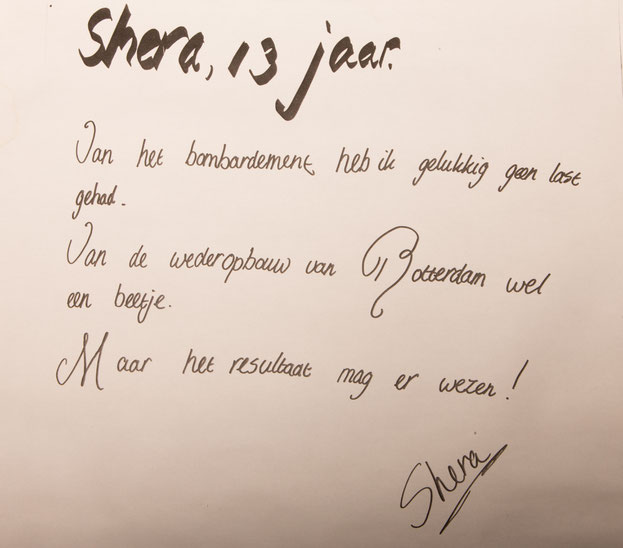 Shera, 13 jaar.
Van het bombardement heb ik gelukkig geen last
gehad.
Van de wederopbouw van Rotterdam wel
een beetje.
Maar het resultaat mag er wezen!
Shera